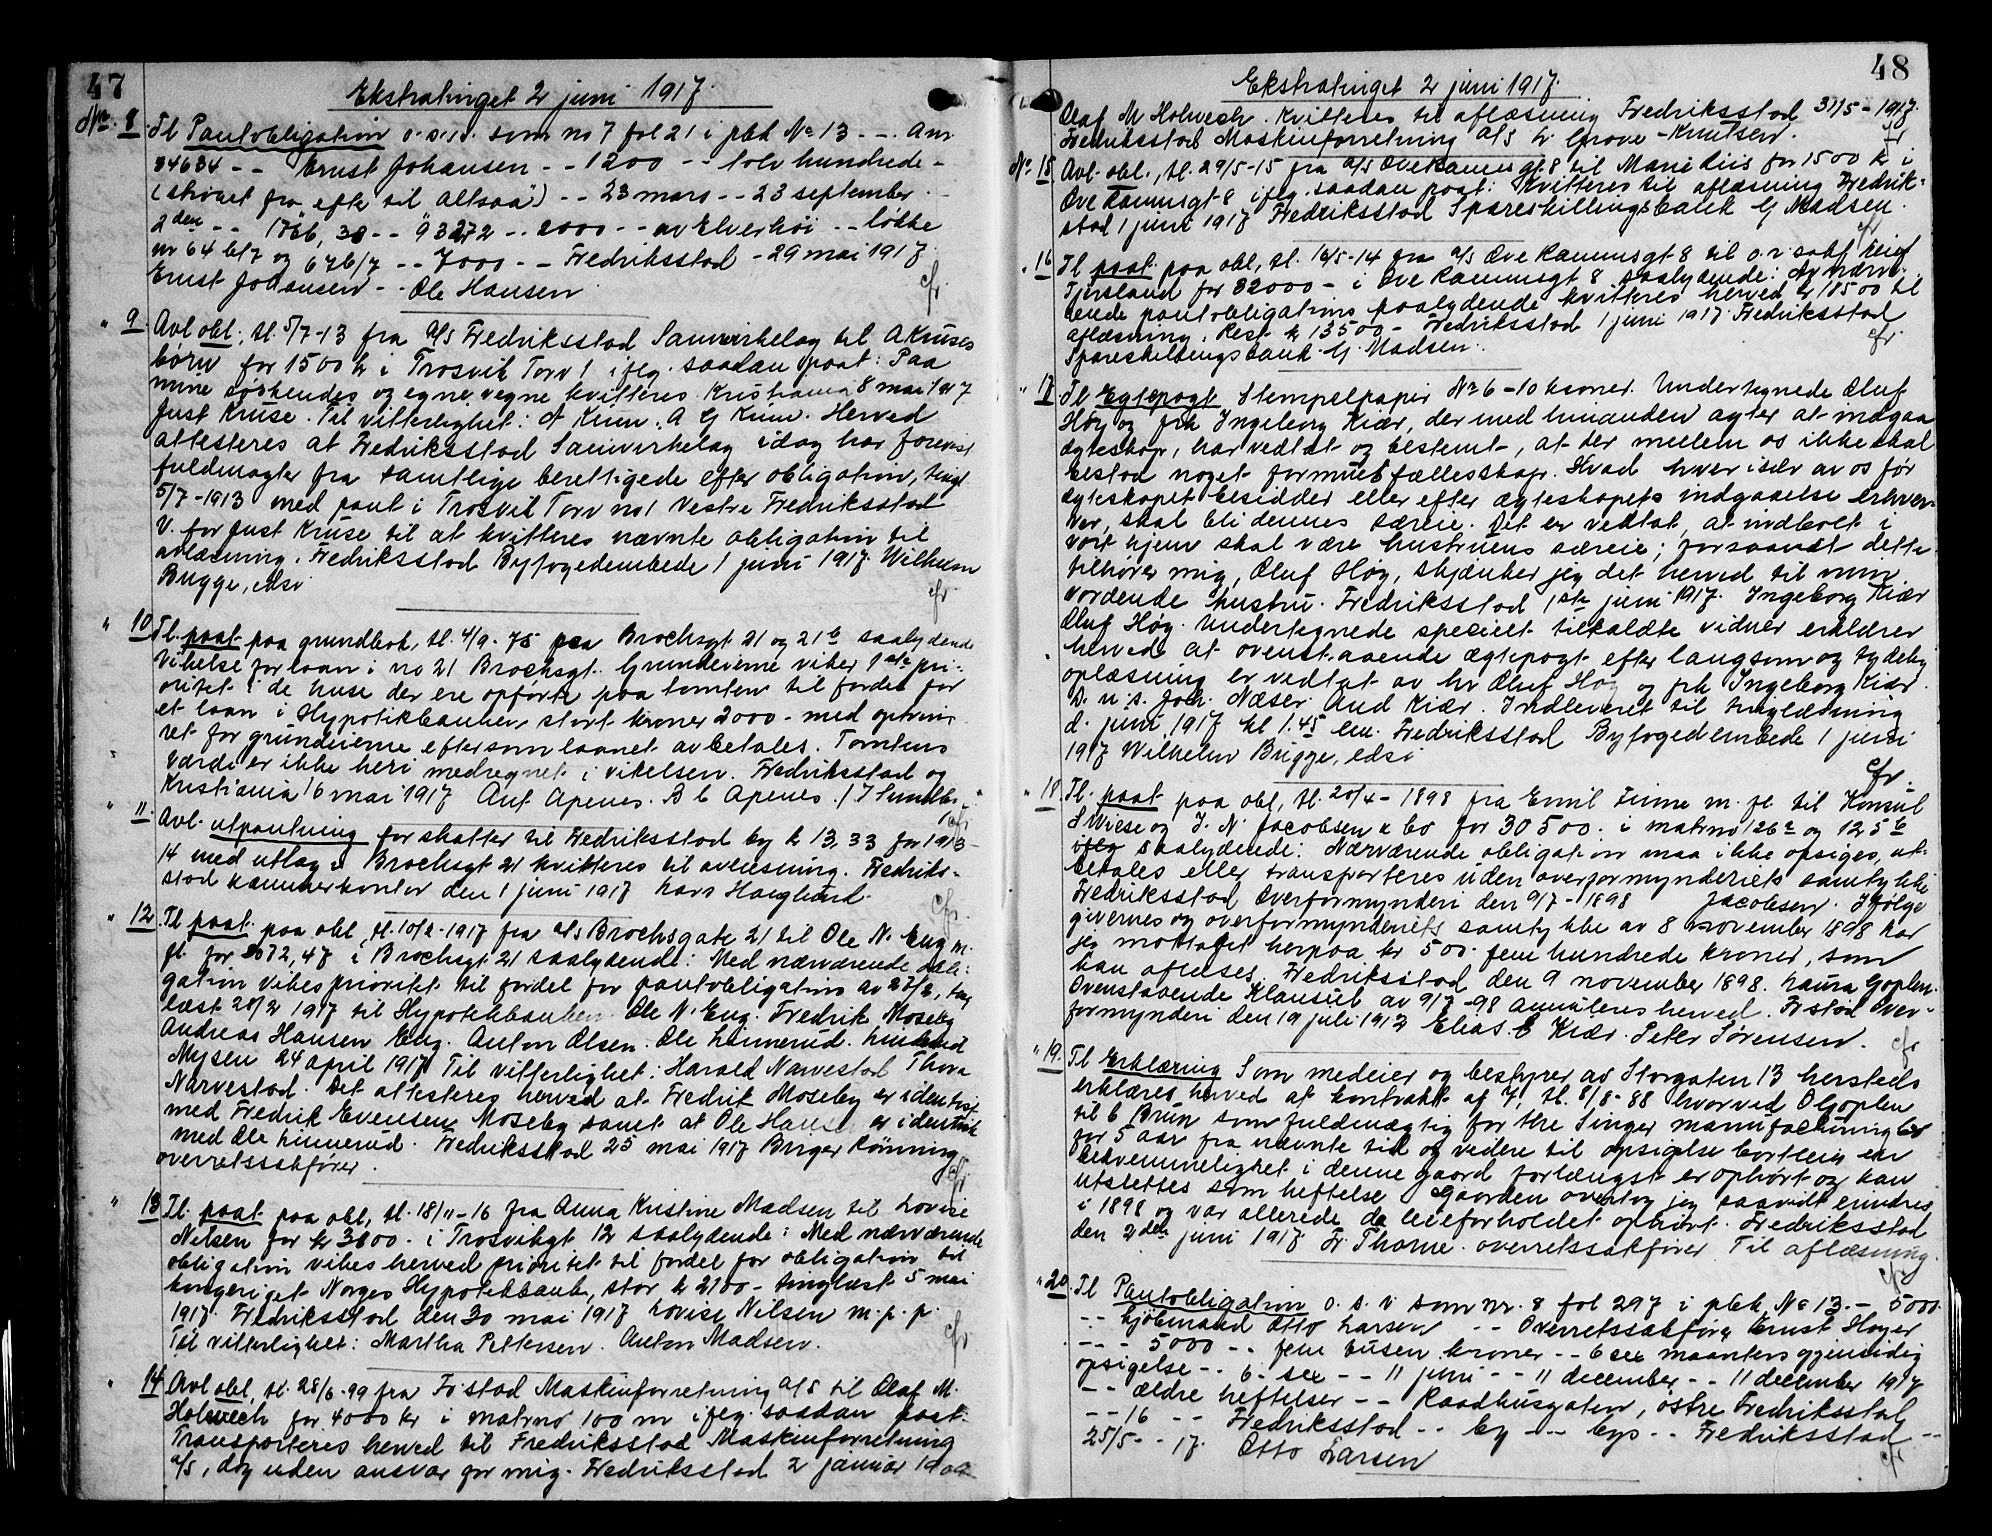 47
Ekstratinget 2 juni 1917.
No. 8 Tl Pantobligation o.s.v. som no 7 fol 21 i pbk No 13 - - Anm
34634 - - Ernst Johansen - - 1200 - - tolv hundrede -
(strøket fra "efter" til "altsaa") - - 23 mars - - 23 september - -
2den - - 1766, 30 - - 93272 - - 2000 - - av Elverhøi - - løkke
nr 64 b/7 og 67b/7 - - 7000 - - Fredriksstad - 29 mai 1917.
Ernst Johansen - - Ole Hansen
cfr
" 9. Avl obl, tl. 5/7-13 fra A/S Fredriksstad Samvirkelag til A Kruses
børn for 1500 kr i Trosvik Torv 1 ifjg. saadan paat: Paa
mine søskendes og egne vegne kvitteres. Kristiania 8 mai 1917
Just Kruse. Til vitterlighet: A Krum. A G Krum. Herved
attesteres at Fredriksstad Samvirkelag idag har forevist
fuldmagter fra samtlige berettigede efter obligation, tingl
5/7-1913 med pant i Trosvik Torv no 1 Vestre Fredriksstad
V. for Just Kruse til at kvitteres nævnte obligation til
avlæsning. Fredriksstad Byfogedembede 1 juni 1917. Wilhelm
Bugge, edsv
cfr
" 10 Tl. paat. paa grundbok, tl. 4/9-75 paa Brochsgt 21 og 21b saalydende
Vikelse for laan i no 21 Brochsgt. Grundeierne viker 1ste pri-
oritet i de huse der ere opførte paa tomten til fordel for
et laan i Hypotekbanken stort kroner 2000 - med opryknings-
ret for grundeierne eftersom laanet avbetales. Tomtens
værdi er ikke heri medregnet i vikelsen. Fredriksstad og
Kristiania 16 mai 1917 Ant Apenes. B C Apenes.
cfr
" 11. Avl. utpantning for skatter til Fredriksstad by kr 13,33 for 1913-
14 med utlag i Brochsgt 21 kvitteres til avlæsning. Fredriks-
stad kæmnerkontor den 1 juni 1917 Lars Haaglund.
cfr.
" 12 Tl paat. paa obl, tl. 10/2-1917 fra A/S Brochsgate 21 til Ole N. Eng m.
fl. for 3072,47 i Brochsgt 21 saalydende: Med nærværende obli-
gation vikes prioritet til fordel for pantobligation av 20/2, ting
læst 20/2 1917 til Hypotekbanken. Ole N. Eng. Fredrik Moseby
Andreas Hansen Eng. Anton Olsen. Ole Linnerud.
Mysen 24 april 1917 Til vitterlighet: Harald Narvestad Thora
Narvestad. Det attesteres herved at Fredrik Moseby er identisk
med Fredrik Evensen Moseby samt at Ole Hansen er identisk
med Ole Linnerud. Fredriksstad 25 mai 1917 Birger Rønning
overretssakfører.
cfr
" 13 Tl. paat. paa obl, tl. 18/11-16 fra Anna Kristine Madsen til Lovise
Nilsen for kr 3600.- i Trosvikgt 12 saalydende: Med nærværende
obligation vikes herved prioritet til fordel for obligation til
kongeriget Norges Hypotekbank, stor kr 2100 - tinglæst 5 mai
1917. Fredriksstad den 30 mai 1917 Lovise Nilsen m. p. p.
Til vitterlighet: Martha Pettersen. Anton Madsen.
cfr
" 14 Avl obl, tl. 28/6-99 fra Fr.stad Maskinforretning A/S til Olaf M.
Holwech for 4000 kr i matrno 100 m ifjg. saadan paat.
Transporteres herved til Fredriksstad Maskinforretning
A/S, dog uden ansvar for mig. Fredriksstad 2 januar
48
Ekstratinget 2 juni 1917.
Olaf M Holwech. Kvitteres til aflæsning Fredriksstad 31/5-1917.
Fredriksstad Maskinforretning A/S L Grove-Knutsen.
cfr
No 15 Avl. obl., tl. 29/5-15 fra A/S Ove Ramms gt. 8 til Marie Riis for 1500 kr i
Ove Rammsgt 8 ifjg. saadan paat: Kvitteres til aflæsning Fredrik-
stad 1 juni 1917 Fredriksstad Spareskillingsbank G Madsen.
cfr
" 16 Tl paat. paa obl, tl. 16/5-14 fra A/S Ove Rammsgt 8 til o.r.sakf Leif
Tjersland for 32000 - i Ove Rammsgt 8 saalydende: Av nærvæ-
rende pantobligations paalydende kvitteres herved kr 18500 til
aflæsning. Rest kr 13500 - Fredriksstad 1 juni 1917. Fredriksstad
Spareskillingsbank. G. Madsen.
cfr
" 17 Tl Egtepagt Stempelpapir No 6 - 10 kroner. Undertegnede Oluf
Høy og frk Ingeborg Kiær, der med hinanden agter at indgaa
ægteskap, har vedtat og bestemt, at der mellem os ikke skal
bestaa noget formuesfællesskap. Hvad hver især av os før
ægteskapet besidder eller efter ægteskapets indgaaelse erhver-
ver, skal bli dennes særeie. Det er vedtat, at indboet i
vort hjem skal være hustruens særeie; forsaavidt dette
tilhører mig, Oluf Høy, skjænker jeg det herved til min
vordende hustru. Fredriksstad 1ste juni 1917. Ingeborg Kiær
Oluf Høy. Undertegnede specielt tilkaldte vidner erklærer
herved at ovenstaaende ægtepagt efter langsom og tydelig
oplæsning er vedtat av hr Oluf Høy og frk Ingeborg Kiær.
D. u. s. Joh. Næser. And Kiær. Indleveret til tinglæsning
d. juni 1917 kl 1.45 em. Fredriksstad Byfogedembede 1 juni
1917 Wilhelm Bugge, edsv
cfr.
" 18 Tl. paat. paa obl, tl. 20/4-1898 fra Emil Firme m. fl. til Konsul
S Wiese og J. N. Jacobsen & Co for 30500. i matrno 126a og 125b
ifjg saalydende: Nærværende obligation maa ikke opsiges, ut-
betales eller transporteres uden overformynderiets samtykke
Fredriksstad Overformynderi den 9/7-1898 Jacobsen. Ifølge
givernes og overformynderiets samtykke av 8 november 1898 har
jeg mottatt herpaa kr 500. fem hundrede kroner, som
kan aflæses. Fredriksstad den 9 november 1898. Laura Goplen.
Ovenstaaende Klausul av 9/7-98 annuleres herved. Fr.stad Over-
formynderi den 19 juli 1912 Elias C Kiær. Peter Sørensen.
cfr
" 19. Tl Erklæring Som medeier og bestyrer av Storgaten 13 hersteds
erklæres herved at kontrakt af 7, tl. 8/8-88 hvorved O Goplen
til C Brun som fuldmægtig for the Singer manufacturing Co
for 5 aar fra nævnte tid og videre til opsigelse bortleier en
bekvemmelighet i denne gaard forlængst er ophørt og kan
utslettes som heftelse. Gaarden overtog jeg saavidt erindres
i 1898 og var allerede da leieforholdet ophørt. Fredriksstad
den 2den juni 1917 Fr Thorne. overretssakfører Til aflæsning.
cfr
" 20 Tl Pantobligation o. s. v som nr. 8 fol 297 i pbk, No 13. - 5000.
- - Kjøbmand Otto Larsen - - Overretssakfører Ernst Høyer
- - - 5000 - - fem tusen kroner - - 6 sex maaneders gjensidig
opsigelse - - 6. sex - - 11 juni - - 11 december - - 11 december 1917
- - ældre heftelser - - Raadhusgaten, østre Fredriksstad
- - 16 - - Fredriksstad - - by - - bys - - Fredriksstad - -
25/5 - - 17. Otto Larsen
cfr